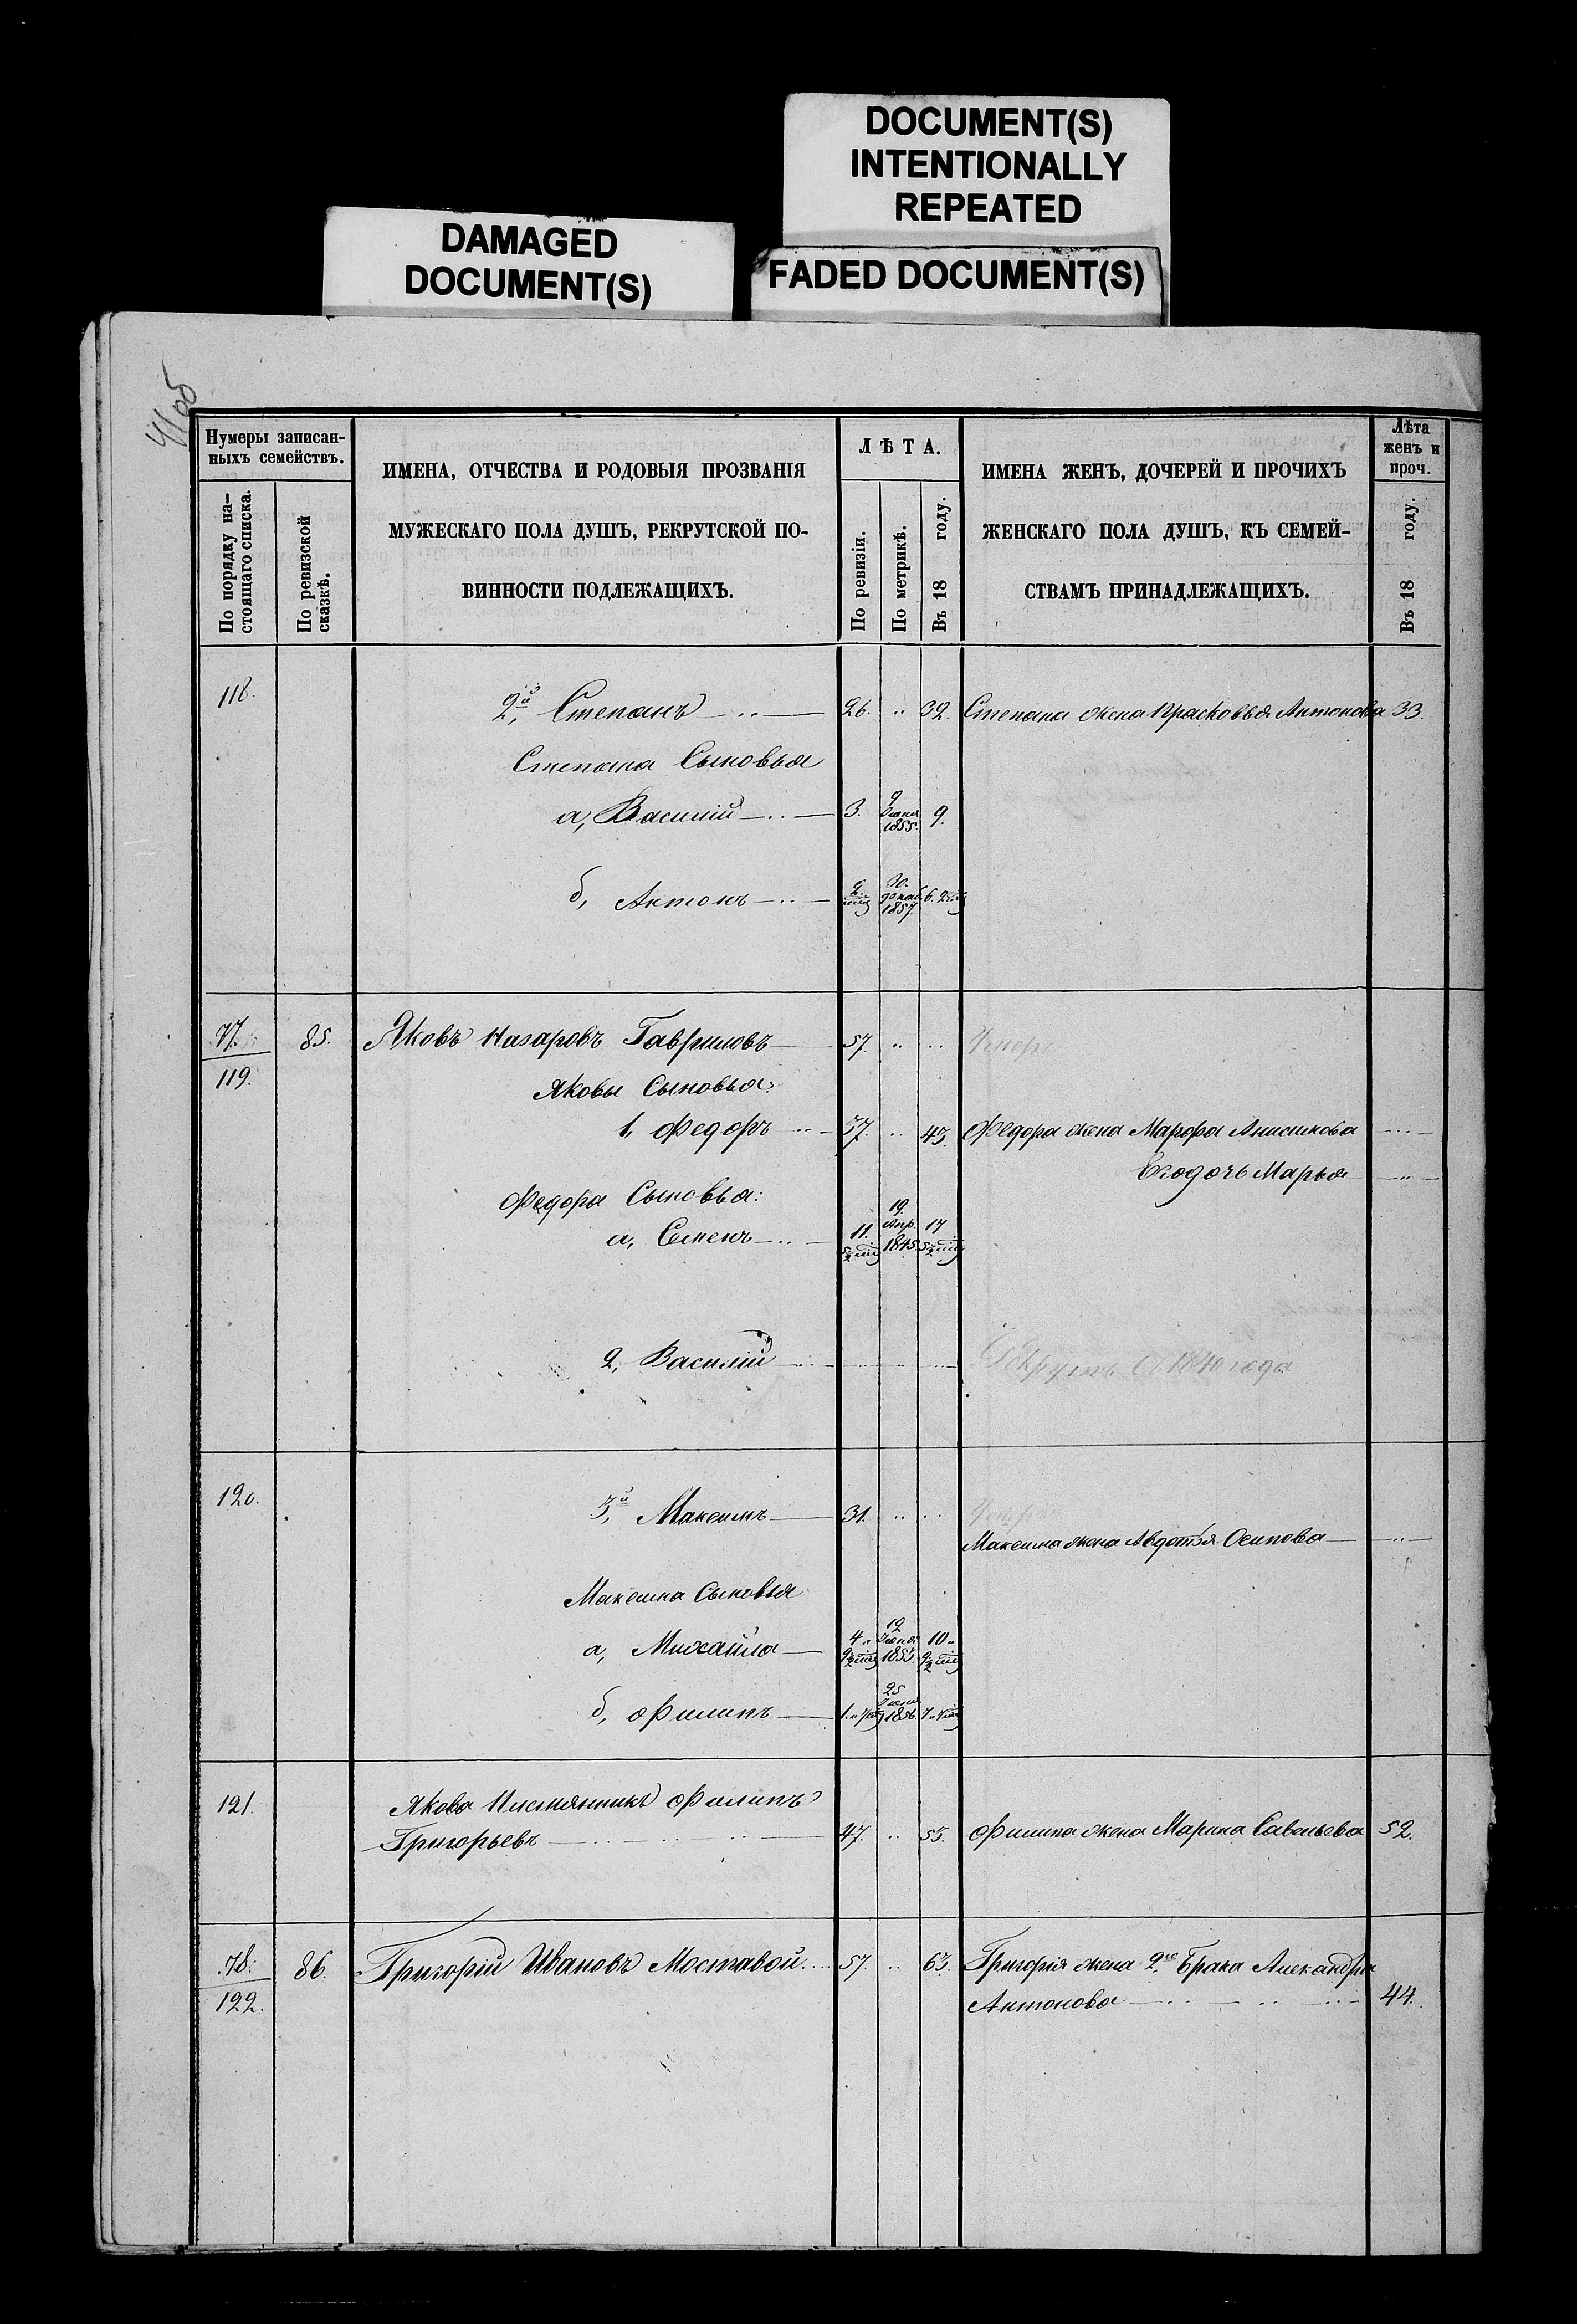 DOCUMENT(S)
INTENTIONALLY
REPEATED
DAMAGED
DOCUMENT(S)
FADED DOCUMENT(S)
41об
Нумеры записан-
ныхъ семействъ.
По порядку на-
стоящаго списка.
По ревизской
сказкѣ.
ИМЕНА, ОТЧЕСТВА И РОДОВЫЯ ПРОЗВАНІЯ
МУЖЕСКАГО ПОЛА ДУШЪ, РЕКРУТСКОЙ ПО-
ВИННОСТИ ПОДЛЕЖАЩИХЪ.
ЛѢТА.
По ревизіи.
По метрикѣ.
Въ 18 году.
ИМЕНА ЖЕНЪ, ДОЧЕРЕЙ И ПРОЧИХЪ
ЖЕНСКАГО ПОЛА ДУШЪ, КЪ СЕМЕЙ-
СТВАМЪ ПРИНАДЛЕЖАЩИХЪ.
Лѣта
женъ и
проч.
Въ 18 году.
118. 2й, Степанъ 26. 32. Степана жена Прасковья Антонова 33.
Степана Сыновья
а, Василій 3. 9 1855. 9.
б, Антонъ 30. декаб. 1857 6.
77. 85. Яковъ Назаровъ Гавриловъ 57. Умеръ
119. Яковы Сыновья:
1, Федоръ 37. 43. Федора жена Марфа Анисимова
Его дочь Марья
Федора Сыновья:
а, Семенъ 11. 19. Апр. 1845 17
2, Василій Рекрутъ съ 1840 года
120. 3й, Максимъ 31. Умеръ
Максима жена Авдотья Осипова
Максима Сыновья
а, Михайла 4 12 1853. 10
б, Филипъ 1. 25 1856. 7
121. Якова Племянникъ Филипъ
Григорьевъ 47. 53. Филипа жена Марина Савельева 52.
78. 86. Григорій Ивановъ Моставой 57. 63. Григорія жена 2го брака Александра
122. Антонова 44.